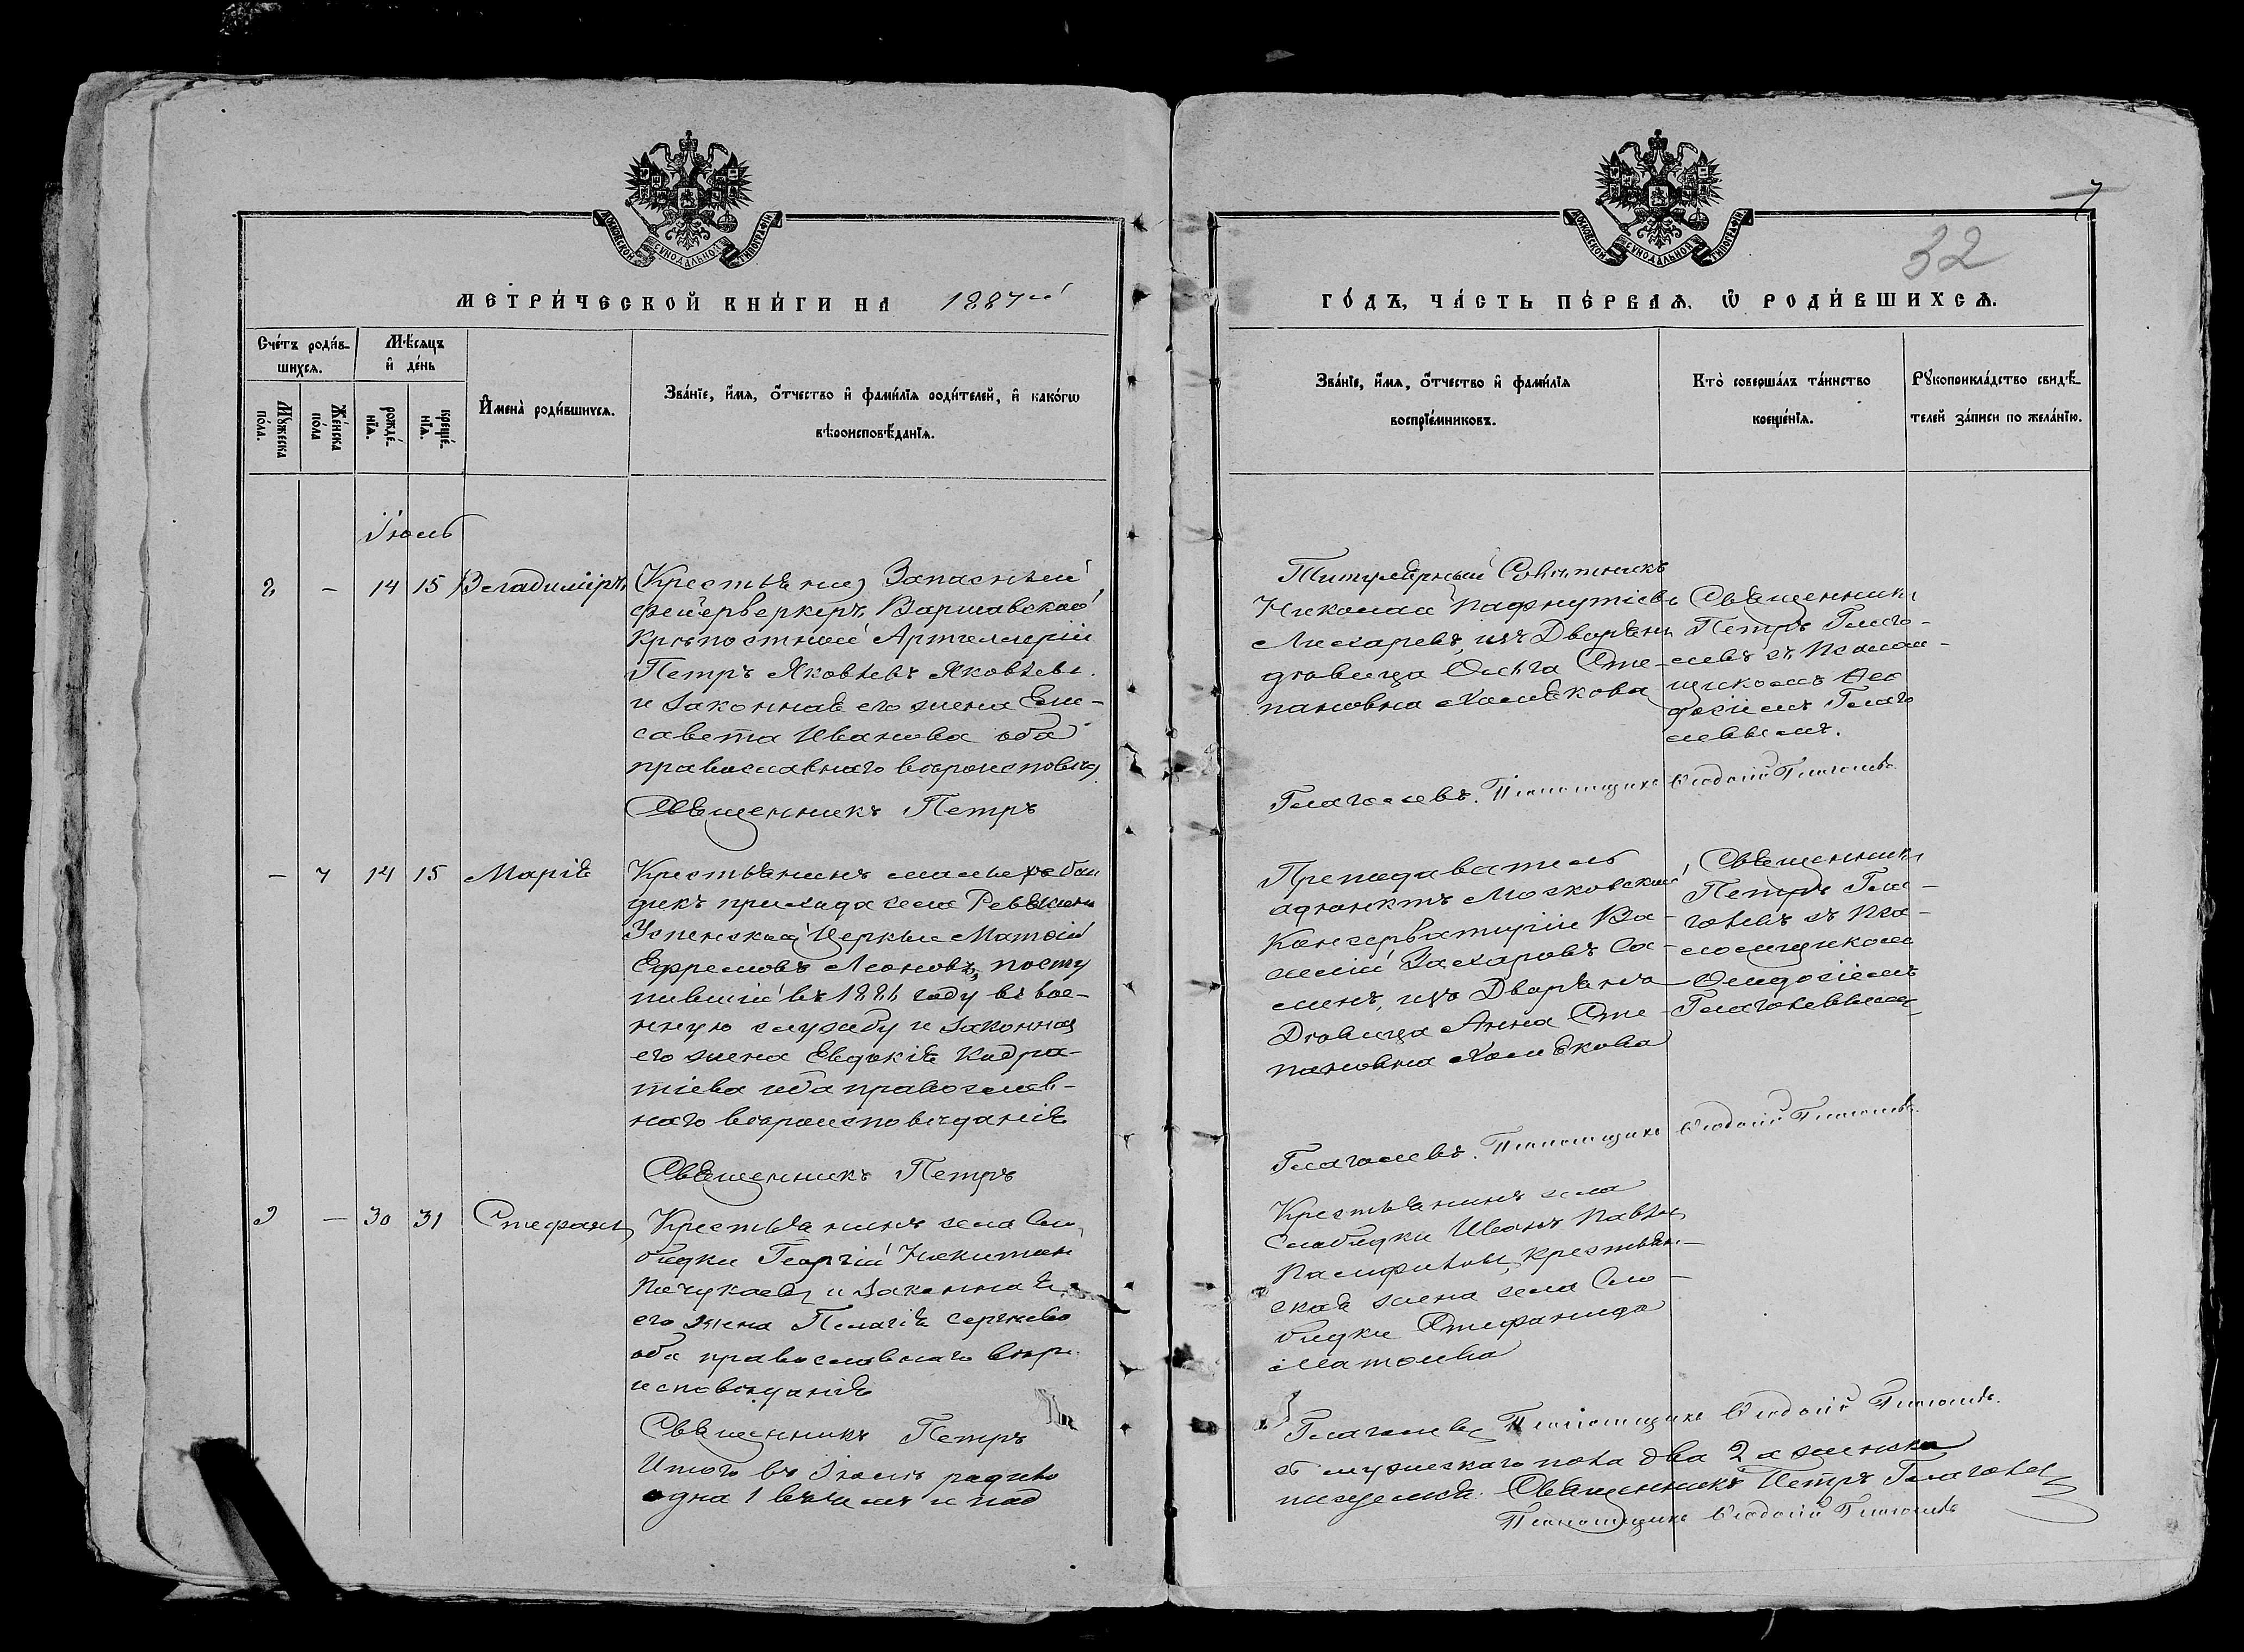 МОСКОВСКОЙ СѴНОДАЛЬНОЙ ТИПОГРАФІИ
МЕТРИ́ЧЕСКОЙ КНИ́ГИ НА 1887й
Сче́тъ роди́в-
шихсѧ.
Мѣ́сѧцъ
и҆ де́нь
Мꙋ́жеска
по́ла.
Же́нска
по́ла
рожде́-
нїѧ.
креще́-
нїѧ.
И҆мена̀ роди́вшихсѧ.
Зва́нїе, и҆́мѧ, ѻ҆́тчество и҆ фами́лїѧ роди́телей, и҆ како́гѡ
вѣроисповѣ́данїѧ.
Іюль
2 - 14 15 Владиміръ
Крестьянинъ Запасный
фейерверкеръ Варшавской
Крѣпостной Артиллеріи
Петръ Яковлевъ Яковлевъ
и законная его жена Ели-
савета Иванова оба
православнаго вѣроисповѣд
Священникъ Петръ
- 7 14 15 Марія
Крестьянинъ
прихода села
Успенской Церкви Матѳій
Ефремовъ Леоновъ, посту
пившій въ 1886 году въ вое-
нную службу и законная
его жена Евдокія Кодра-
тіева оба православ-
наго вѣроисповѣданія
Священникъ Петръ
3 - 30 31 Стефанъ
Крестьянинъ села Сло
бодки Георгій Никитинъ
и законная
его жена Пелагія Сергѣева
оба православнаго вѣро
исповѣданія
Священникъ Петръ
Итого въ Іюлѣ родило
одна 1 въ чемъ и под
МОСКОВСКОЙ СѴНОДАЛЬНОЙ ТИПОГРАФІИ
7
32
ГО́ДЪ, ЧА́СТЬ ПЕ́РВАѦ, Ѡ҆ РОДИ́ВШИХСѦ.
Зва́нїе, и҆́мѧ, ѻ҆́тчество и҆ фами́лїѧ
воспрїе́мниковъ.
Кто̀ соверша́лъ та́инство
креще́нїѧ.
Рꙋкоприкла́дство свидѣ́-
телей за́писи по жела́нїю.
Титулярный Совѣтникъ
Николай Пафнутіевъ
Лихаревъ, изъ Дворянъ
дѣвица Ольга Сте-
пановна Хомякова
Священникъ
Петръ Глаго-
левъ съ Псалом-
щикомъ Ѳео
досіемъ Глаго
левымъ.
Глаголевъ. Псаломщикъ Ѳеодосій Глаголевъ
Преподаватель
адюнктъ Московской
Консерваторіи Ва-
силій Захаровъ Са-
линъ, изъ Дворянъ
Дѣвица Анна Сте-
пановна Хомякова
Священникъ
Петръ Гла-
голевъ съ Пса-
ломщикомъ
Ѳеодосіемъ
Глаголевымъ
Глаголевъ. Псаломщикъ Ѳеодосій Глаголевъ.
Крестьянинъ села
Слободки Иванъ Павловъ
Памфиловъ, крестьян-
ская жена села Сло-
бодки Стефанида
Глаголевъ Псаломщикъ Ѳеодосій Глаголевъ.
съ мужескаго пола два 2 а женска
писуемся. Священникъ Петръ Глаголев
Псаломщикъ Ѳеодосій Глаголевъ